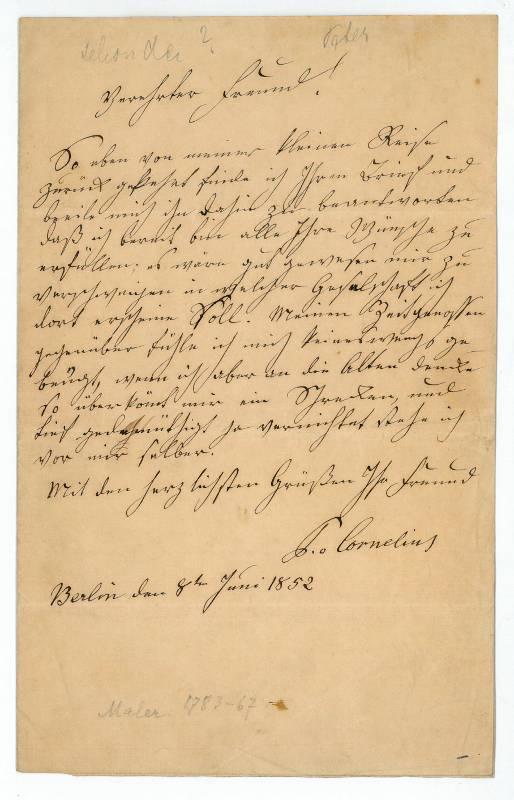 schon da ?
Verehrter Freund!
So eben von meiner kleinen Reise
zurück gekehrt finde ich Ihren Brief und
beeile mich ihn dahin zu beantworten
daß ich bereit bin alle Ihre Wünsche zu
erfüllen; es wäre gut gewesen mir zu
verschweigen in welcher Gesellschaft ich
dort erscheine soll. Meinen Zeitgenossen
gegenüber fühle ich mich keineswegs ge
beugt, wenn ich aber an die Alten denke
so überkömt mir ein Schrecken, und
tief gedemüthigt ja vernichtet stehe ich
vor mir selber.
Mit den herzlichsten Grüßen Ihr Freund
P. v Cornelius
Berlin den 8ten Juni 1852
Maler 1783-67